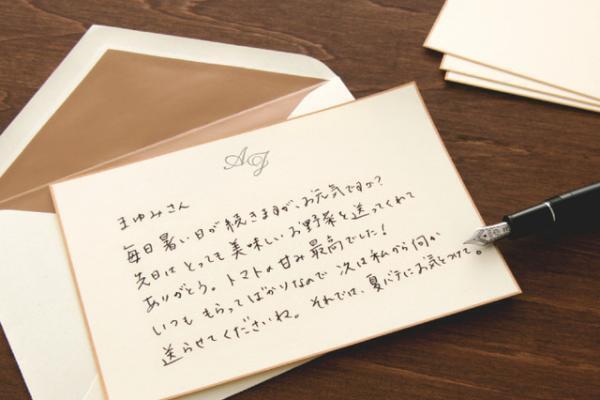 AJ
まゆみさん
毎日暑い日が続きますが、お元気ですか?
先日はとっても美味しいお野菜を送ってくれて
ありがとう。トマトの甘み最高でした!
いつももらってばかりなので次は私から何か
送らせてくださいね。それでは、夏バテにお気をつけて。